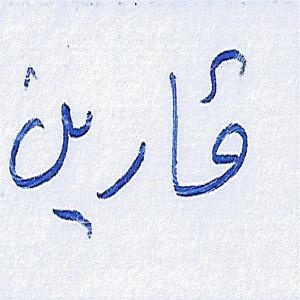 قارين